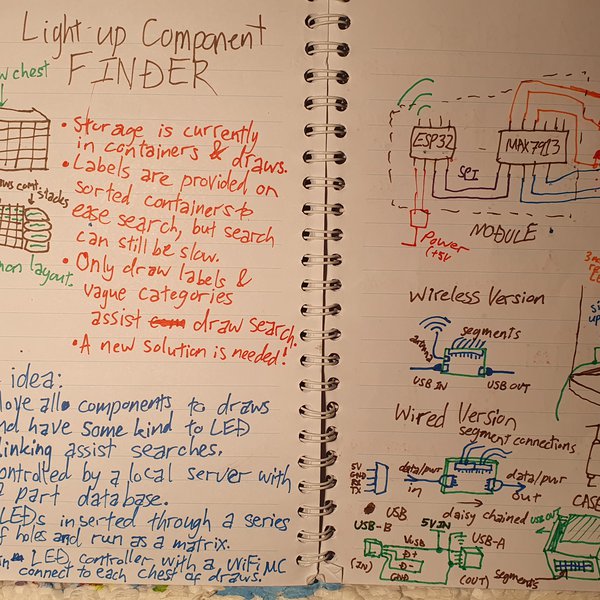 Light-up Component
FINDER
chest
• Storage is currently
in containers & draws.
• Labels are provided on
sorted containers to
ease search, but search
can still be slow.
• Only draw labels &
vague categories
assist draw search.
• A new solution is needed!
cont.
stacks
layout.
idea:
all components to draws
have some kind to LED
assist searches,
by a local server with
part database.
LEDs inserted through a series
holes and run as a matrix.
LED controller, with a WiFi MC
connect to each chest of draws.
ESP32
MAX7913
SPI
Power
(+5V
MODULE
Wireless Version
segments
antenna
USB IN
USB OUT
Wired Version
segment connections
5V
GND
RX
TX
data/pwr
in
data/pwr
out
daisy chained
USB
USB-B
5V IN
USB-A
VUSB
D+
D-
GND
(IN)
(OUT)
CASE
USB OUT
segments